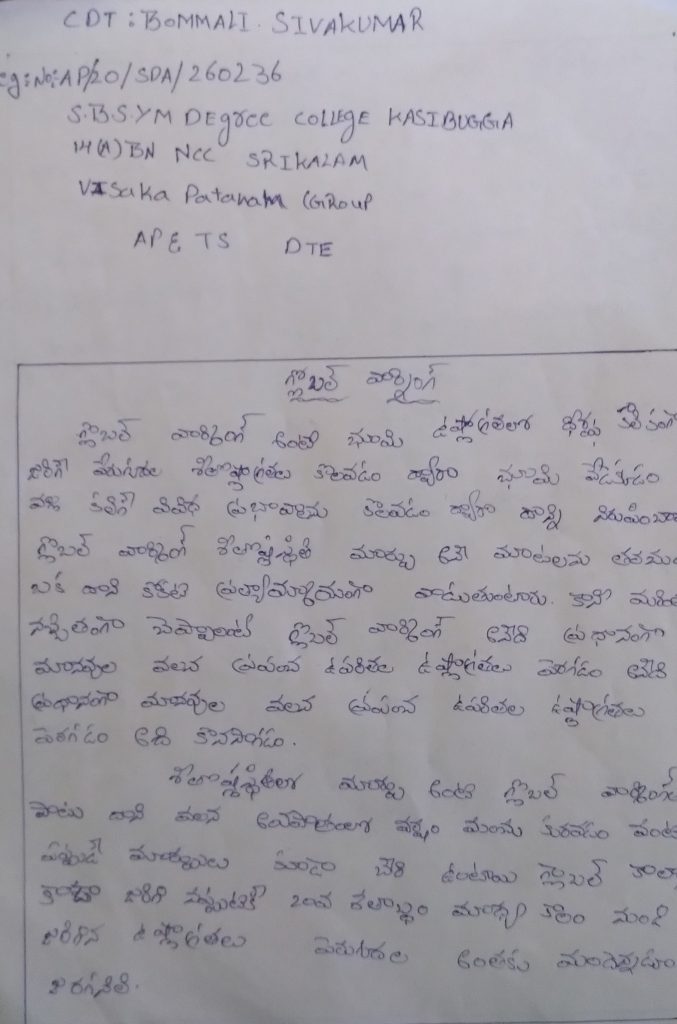 CDT : BOMMALI. SIVAKUMAR
eg: No: AP/20/SDA/260236
S.B.S.Y.M DEgree COLLEGE KASIBUGGA
14 (A) BN NCC SRIKALAM
VISaka Patanam GRoup
AP & TS DTE
గ్లోబల్ వార్మింగ్
గ్లోబల్ వార్మింగ్ అంటే భూమి ఉష్ణోగ్రతలలో
జరిగే పెరుగుదల శీతోష్ణోగ్రతలు కొలవడం ద్వారా భూమి వేడెక్కడం
వల్ల కలిగే వివిధ ప్రభావాలను కొలవడం ద్వారా దాన్ని
గ్లోబల్ వార్మింగ్ శీతోష్ణస్థితి మార్పు అనే మాటలను
ఒక దాని కొకటి ప్రత్యామ్నాయంగా వాడుతుంటారు. కానీ
చెప్పాలంటే గ్లోబల్ వార్మింగ్ అనేది ప్రధానంగా
మానవుల వలన ప్రపంచ ఉపరితల ఉష్ణోగ్రతలు పెరగడం అనేది
ప్రధానంగా మానవుల వలన ప్రపంచ ఉపరితల ఉష్ణోగ్రతలు
పెరగడం అది కొనసాగడం.
శీతోష్ణస్థితిలో మార్పు అంటే గ్లోబల్
పాటు దాని వలన వర్షం మంచు కురవడం
మార్పులు కుండా చేరి ఉంటాయి గ్లోబల్
జరిగే 20వ శతాబ్దం మధ్య కాలం నుండి
జరిగిన ఉష్ణోగ్రతలు పెరుగుదల అంతకు మునుపెన్నడూ
జరగలేదు.